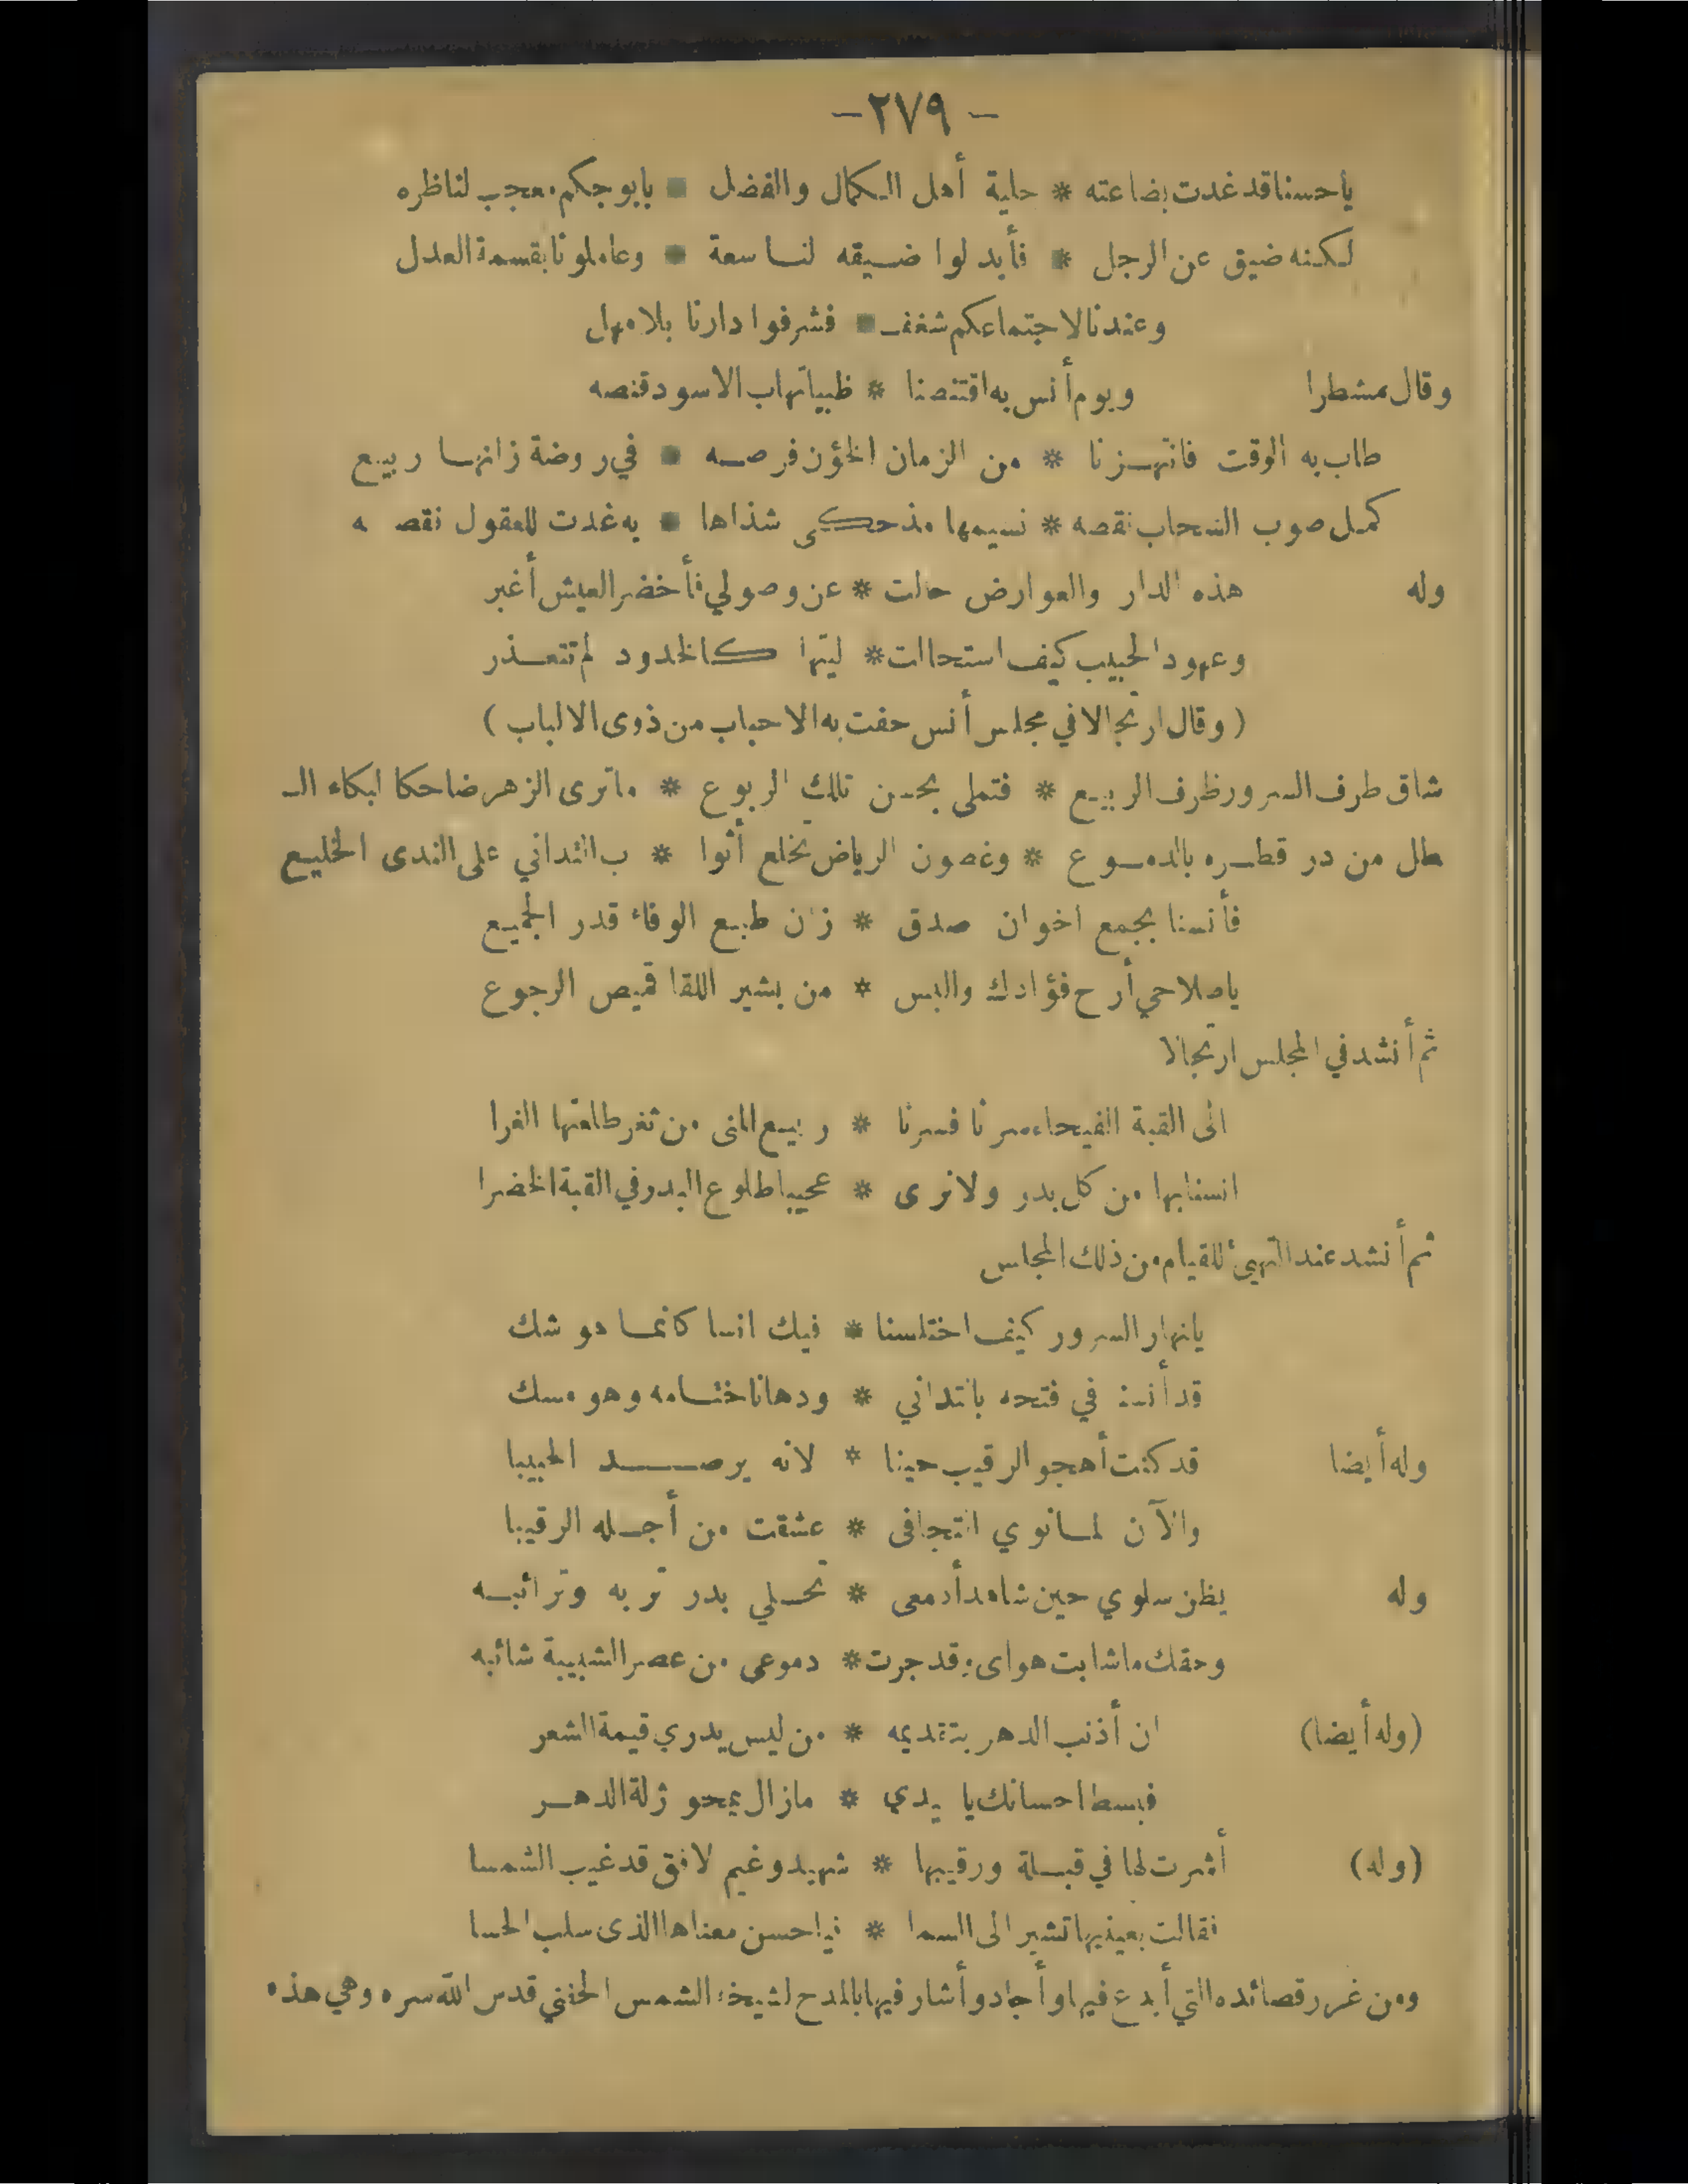 -٢٧٩-
ياحسنا قد غدت بضاعته * حلية أهل الكمال والفضل * بابوجكم معجب لناظره
لكنه ضيق عن الرجل * فأبدلوا ضيقه لنا سعة * وعاملونا بقسمة العدل
وعندنا لاجتماعكم شغف * فشرفوا دارنا بلا مهل
وقال مشطرا ويوم أنس به اقتنصنا * ظبيا تهاب الاسود قنصه
طاب به الوقت فانتهزنا * من الزمان الخؤن فرصه * في روضة زانها ربيع
كمل صوب السحاب نقصه * نسيمها مذ حكى شذاها * به غدت للعقول نقصه
وله هذه الدار والعوارض حالت * عن وصولي فأخضر العيش أغبر
وعهود الحبيب كيف استحالت * ليتها كالخدود لم تتعذر
(وقال ارتجالا في مجلس أنس حفت به الاحباب من ذوى الالباب)
شاق طرف السرور ظرف الربيع * فتملى بحسن تلك الربوع * ماترى الزهر ضاحكا لبكاء الـ
طل من در قطره بالدموع * وغصون الرياض تخلع أثوا * ب التداني على الندى الخليع
فأنسنا بجمع اخوان صدق * زان طبع الوفاء قدر الجميع
ياصلاحي أرح فؤادك والبس * من بشير اللقا قميص الرجوع
ثم أنشد في المجلس ارتجالا
الى القبة الفيحاء سرنا فسرنا * ربيع المنى من ثغر طلعتها الغرا
انسنا بها من كل بدر ولا نرى * عجيبا طلوع البدر في القبة الخضرا
ثم أنشد عند التهيئ للقيام من ذلك المجلس
يانهار السرور كيف اختلسنا * فيك انسا كانما هو شك
قد أنسنا في فتحه بالتداني * ودهانا ختامه وهو مسك
وله أيضا قد كنت أهجو الرقيب حينا * لانه يرصد الحبيبا
والآن لما نوي التجافى * عشقت من أجله الرقيبا
وله يظن سلوي حين شاهد أدمعى * تحلي بدر تربه وترائبه
وحقك ماشابت هواى وقد جرت * دموعى من عصر الشبيبة شائبه
(وله أيضا) ان أذنب الدهر بتقديمه * من ليس يدري قيمة الشعر
فبسط احسانك يا سيدي * مازال يمحو زلة الدهر
(وله) أشرت لها في قبلة ورقيبها * شهيد وغيم لافق قد غيب الشمسا
فقالت بعينيها تشير الى السما * فيا حسن معناها الذى سلب الحسا
ومن غرر قصائده التي أبدع فيها وأجاد وأشار فيها بالمدح لشيخه الشمس الحفني قدس الله سره وهي هذه